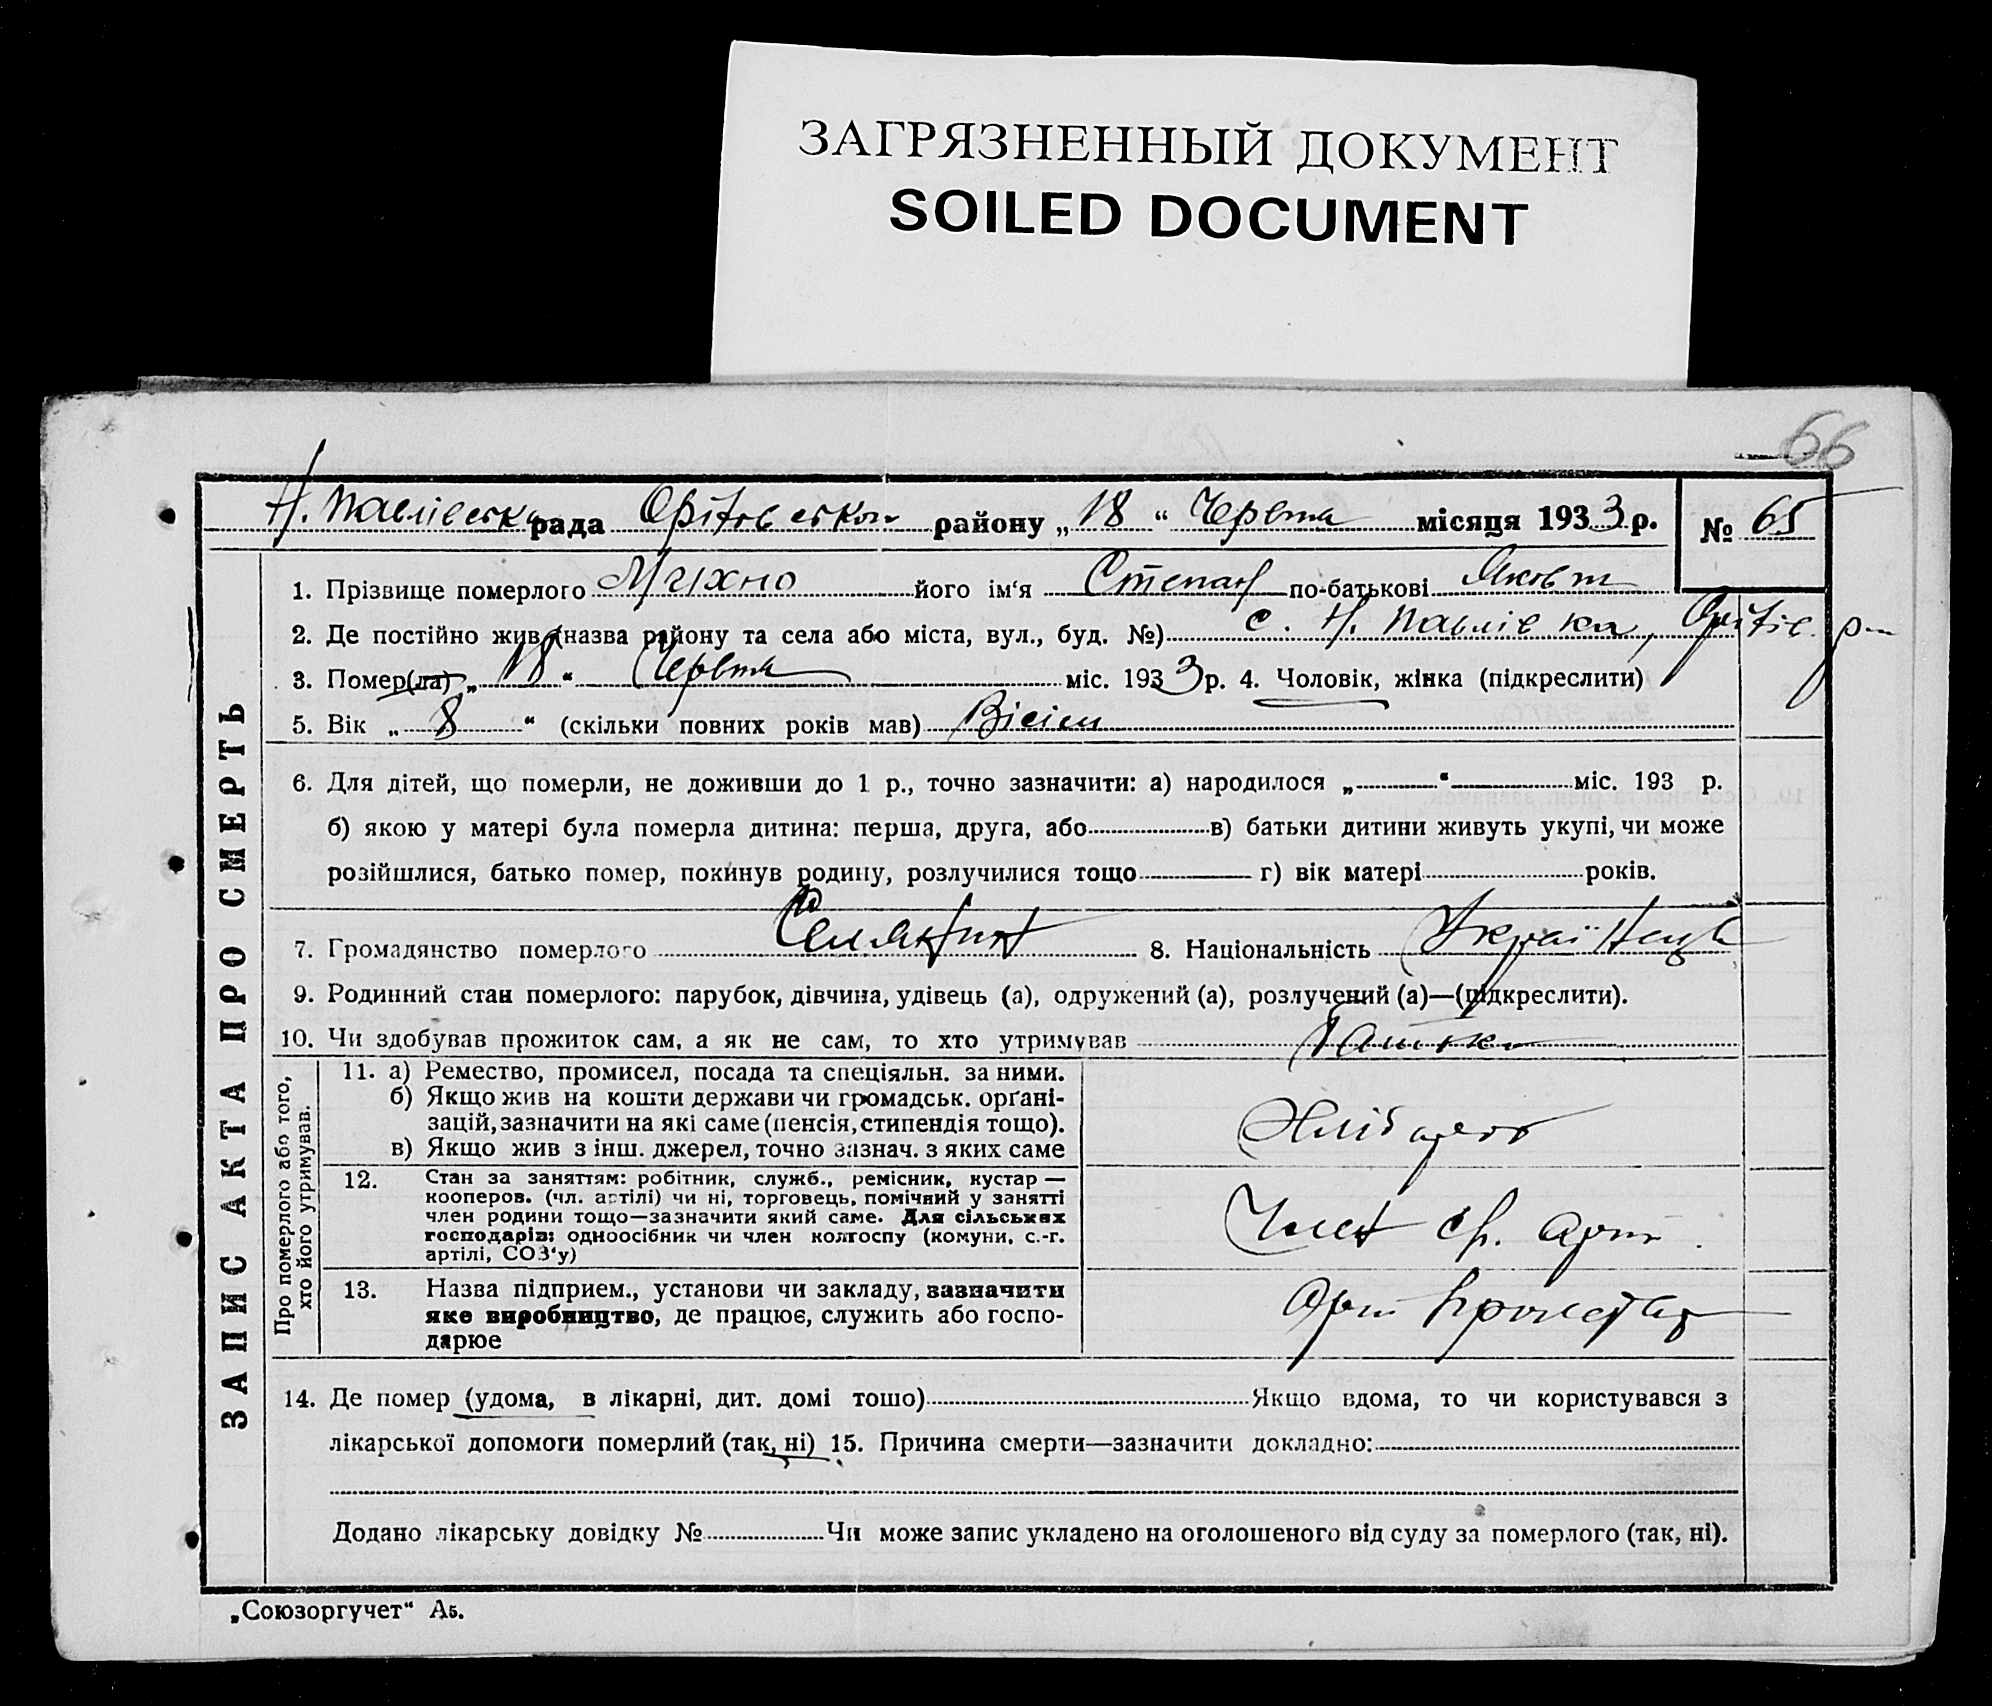 ЗАГРЯЗНЕННЫЙ ДОКУМЕНТ
SOILED DOCUMENT
66
Н. Павлівська рада Оріхівськ району „18“ Червня місяця 1933 р. № 65
ЗАПИС АКТА ПРО СМЕРТЬ
1. Прізвище померлого Міхно його ім'я Степан по-батькові Яковл
2. Де постійно жив (назва району та села або міста, вул., буд. №) с. Н. Павлівка, Оріхів. р-н
3. Помер(ла) „18“ Червня міс. 1933 р. 4. Чоловік, жінка (підкреслити)
5. Вік „8“ (скільки повних років мав) Вісім
6. Для дітей, що померли, не доживши до 1 р., точно зазначити: а) народилося „ “ міс. 193 р.
б) якою у матері була померла дитина: перша, друга, або в) батьки дитини живуть укупі, чи може
розійшлися, батько помер, покинув родину, розлучилися тощо г) вік матері років.
7. Громадянство померлого Селянин 8. Національність Українець
9. Родинний стан померлого: парубок, дівчина, удівець (а), одружений (а), розлучений (а)—(підкреслити).
10. Чи здобував прожиток сам, а як не сам, то хто утримував Батьки
Про померлого або того, хто його утримував.
11. а) Ремество, промисел, посада та спеціяльн. за ними.
б) Якщо жив на кошти держави чи громадськ. орґані-
зацій, зазначити на які саме (пенсія, стипендія тощо).
в) Якщо жив з інш. джерел, точно зазнач. з яких саме
Хлібороб
12. Стан за заняттям: робітник, служб., ремісник, кустар —
кооперов. (чл. артілі) чи ні, торговець, помічний у занятті
член родини тощо—зазначити який саме. Для сільських
господарів: одноосібник чи член колгоспу (комуни, с.-г.
артілі, СОЗ'у)
Член с.г. арт.
13. Назва підприєм., установи чи закладу, зазначити
яке виробництво, де працює, служить або госпо-
дарює
Арт
14. Де помер (удома, в лікарні, дит. домі тошо) Якщо вдома, то чи користувався з
лікарської допомоги померлий (так, ні) 15. Причина смерти—зазначити докладно:
Додано лікарську довідку № Чи може запис укладено на оголошеного від суду за померлого (так, ні).
„Союзоргучет“ А5.